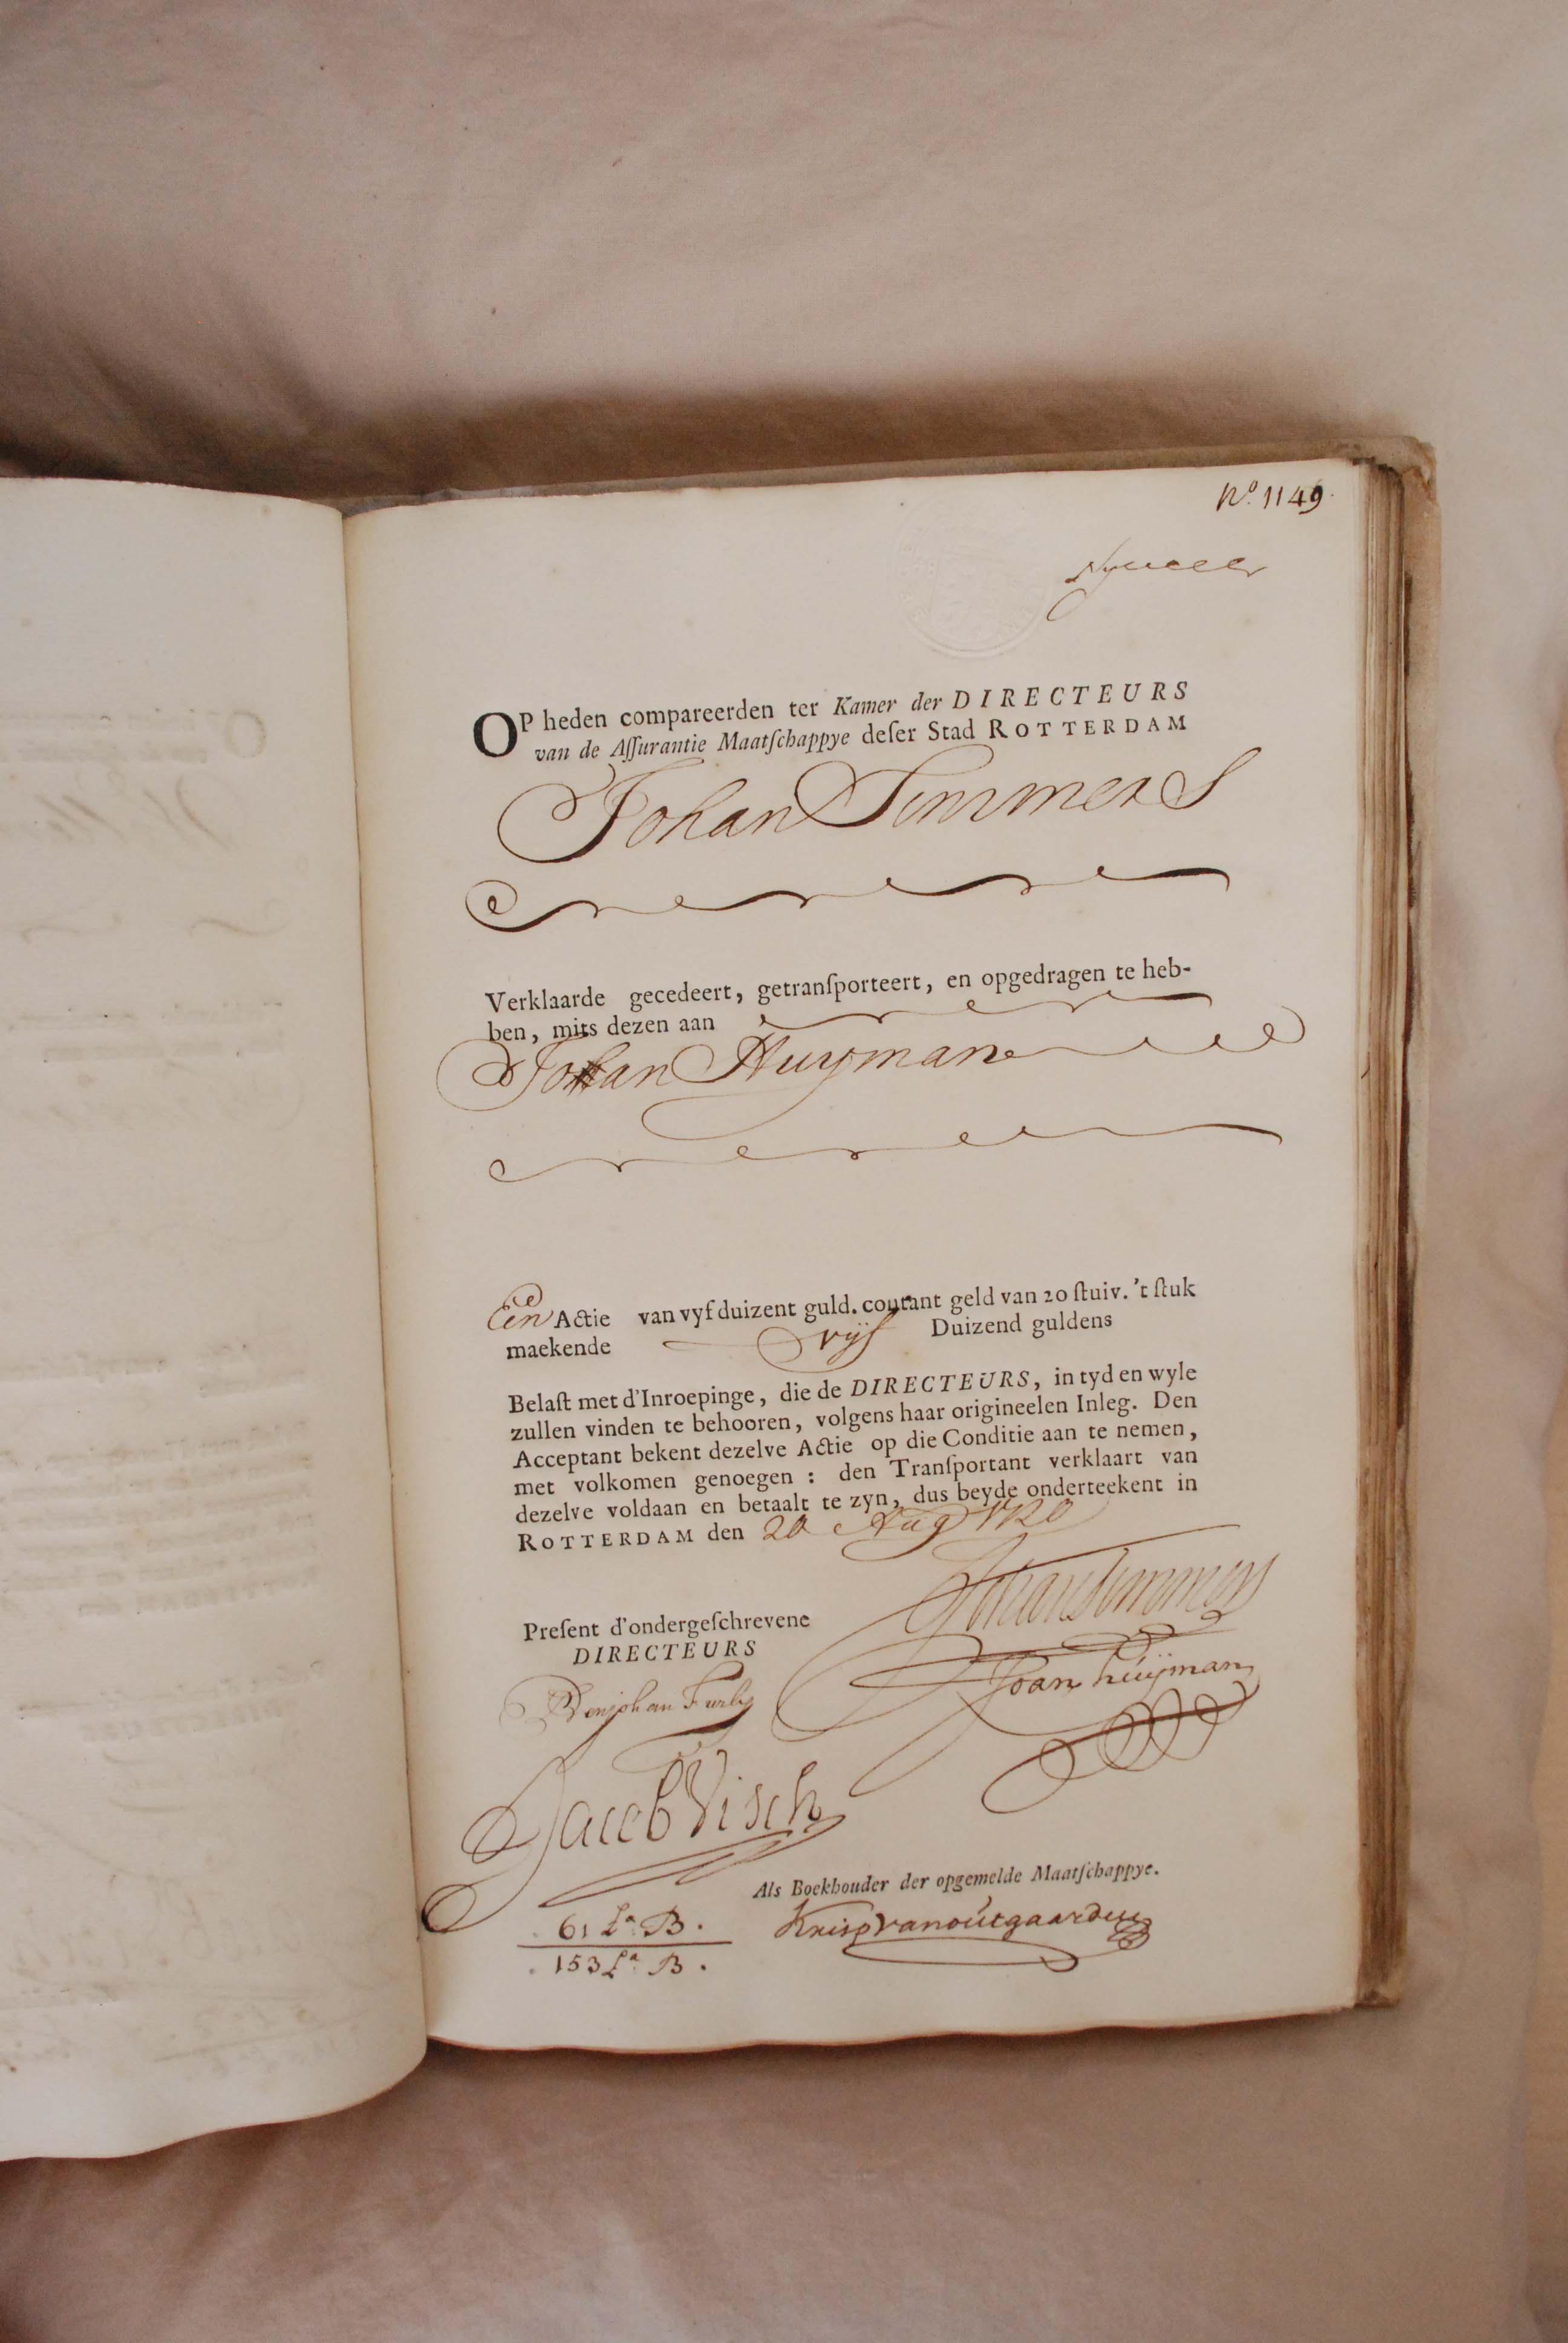 No. 1149.
OP heden compareerden ter Kamer der DIRECTEURS
van de Aſſurantie Maatſchappye deſer Stad ROTTERDAM
Johan Timmers
Verklaarde gecedeert, getranſporteert, en opgedragen te heb-
ben, mits dezen aan
Johan Huyman
Een Actie van vyf duizent guld. courant geld van 20 ſtuiv. 't ſtuk
maekende vyf Duizend guldens
Belaſt met d'Inroepinge, die de DIRECTEURS, in tyd en wyle
zullen vinden te behooren, volgens haar origineelen Inleg. Den
Acceptant bekent dezelve Actie op die Conditie aan te nemen,
met volkomen genoegen : den Tranſportant verklaart van
dezelve voldaan en betaalt te zyn, dus beyde onderteekent in
ROTTERDAM den 20 Aug 1720
Johan Timmers
Preſent d'ondergeſchrevene
DIRECTEURS
Joan huijman
Benjohan Furly
Jacob Visch
Als Boekhouder der opgemelde Maatſchappye.
61 La. B.
Krisp van outgaarden
153 La. B.